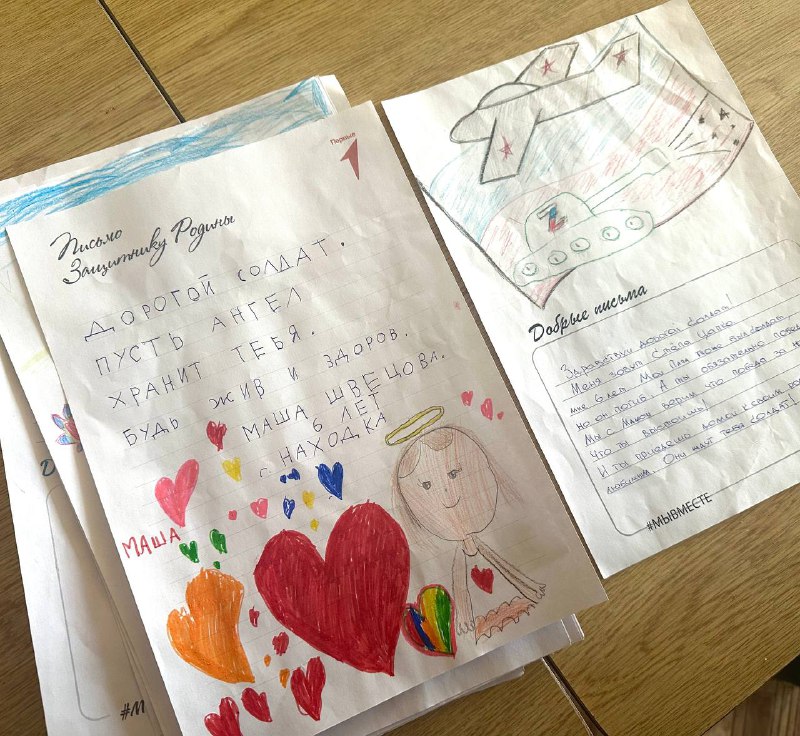 Первые
Письмо
Защитнику Родины
ДОРОГОЙ СОЛДАТ.
ПУСТЬ АНГЕЛ
ХРАНИТ ТЕБЯ.
БУДЬ ЖИВ И ЗДОРОВ.
МАША ШВЕЦОВА.
6 ЛЕТ
г. НАХОДКА
МАША
#М
Добрые письма
Здравствуй дорогой Солдат!
Меня зовут Стёпа
мне 6 лет. Мой Папа тоже был солдат,
но он погиб. А ты обязательно
Мы с Мамой верим что победа за
Что ты вернёшься!
И ты придёшь домой к своим
любимым. Они ждут тебя Солдат!
#МЫВМЕСТЕ